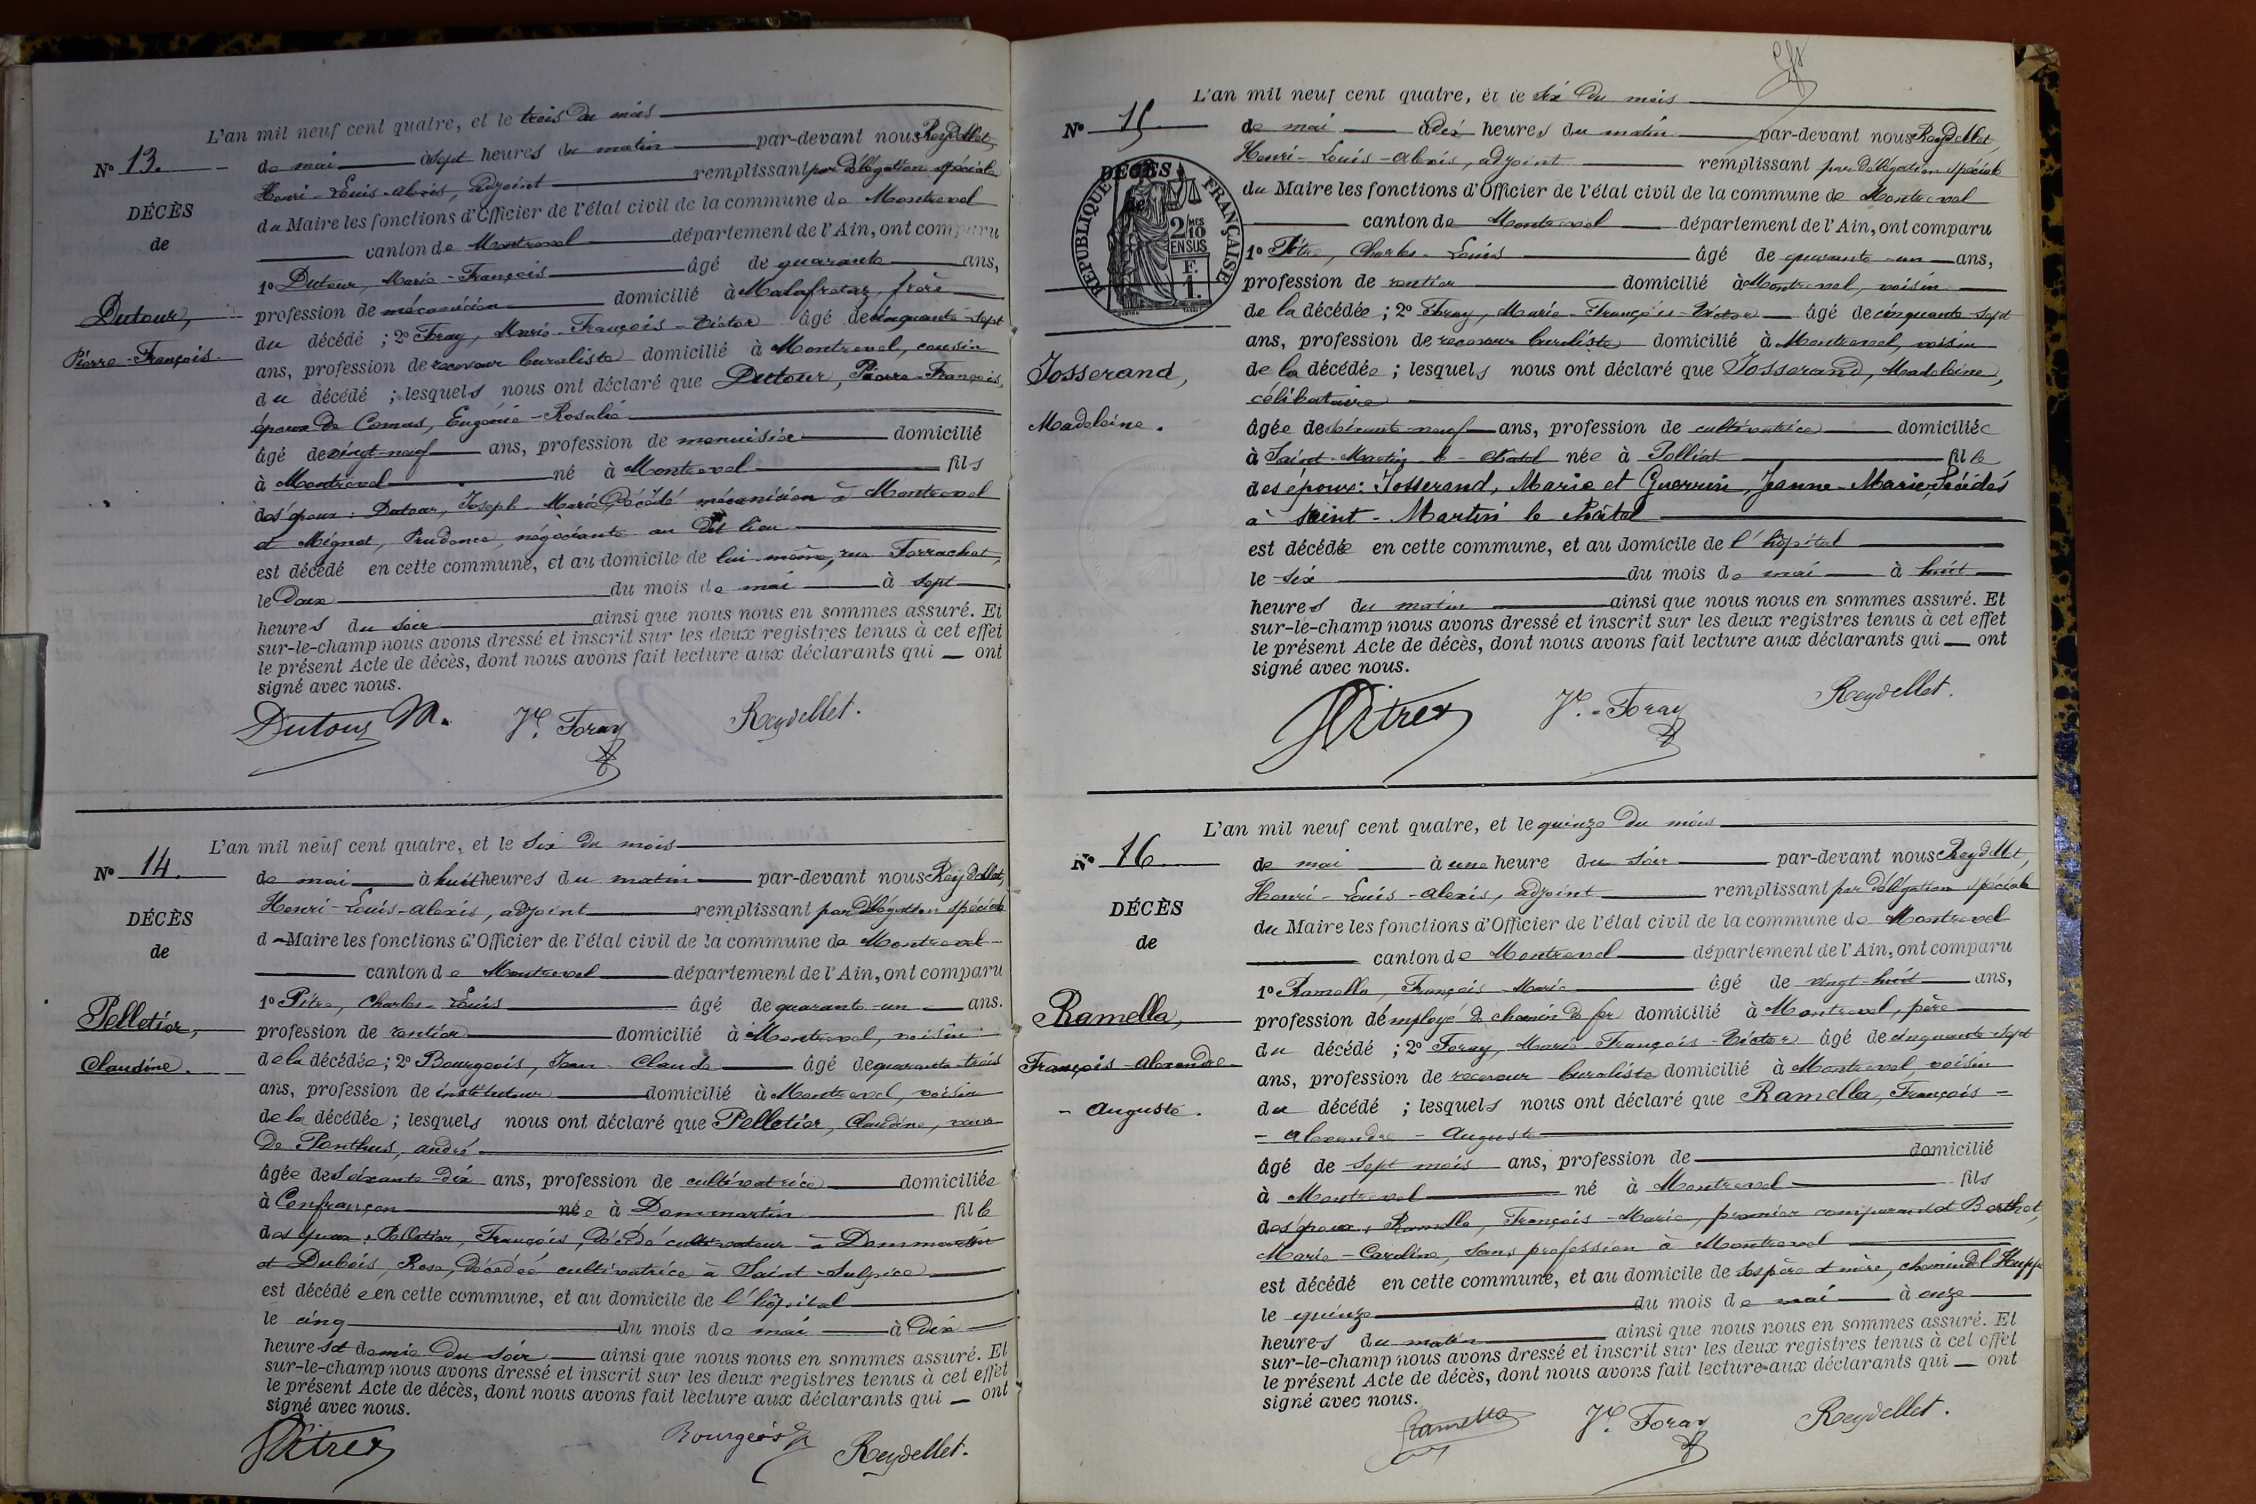 L'an mil neuf cent quatre, et le trois du mois
N° 13.
de mai à sept heures du matin par-devant nous Reydellet,
Henri-Louis-Alexis, adjoint remplissant par délégation spéciale
DÉCÈS
du Maire les fonctions d'Officier de l'état civil de la commune de Montrevel
de
canton de Montrevel département de l'Ain, ont comparu
1° Dutour, Marie-François âgé de quarante ans,
Dutour,
profession de mécanicien domicilié à Malafretaz, frère
Pierre-François.
du décédé ; 2° Foray, Marie-François-Victor âgé de cinquante-sept
ans, profession de receveur buraliste domicilié à Montrevel, cousin
du décédé ; lesquels nous ont déclaré que Dutour, Pierre-François,
époux de Comas, Eugénie-Rosalie
âgé de vingt-neuf ans, profession de menuisier domicilié
à Montrevel né à Montrevel fils
des époux : Dutour, Joseph-Marie, décédé mécanicien à Montrevel
et Mignot, Prudence, négociante au dit lieu
est décédé en cette commune, et au domicile de lui-même, rue Ferrachat,
le deux du mois de mai à sept
heures du soir ainsi que nous nous en sommes assuré. Et
sur-le-champ nous avons dressé et inscrit sur les deux registres tenus à cet effet
le présent Acte de décès, dont nous avons fait lecture aux déclarants qui ont
signé avec nous.
Dutour M. Vr. Foray Reydellet.
L'an mil neuf cent quatre, et le six du mois
N° 14.
de mai à huit heures du matin par-devant nous Reydellet,
Henri-Louis-Alexis, adjoint remplissant par délégation spéciale
DÉCÈS
d Maire les fonctions d'Officier de l'état civil de la commune de Montrevel
de
canton de Montrevel département de l'Ain, ont comparu
1° Pitre, Charles-Louis âgé de quarante-un ans.
Pelletier,
profession de rentier domicilié à Montrevel, voisin
Claudine.
de la décédée ; 2° Bourgeois, Jean-Claude âgé de quarante-trois
ans, profession de instituteur domicilié à Montrevel, voisin
de la décédée ; lesquels nous ont déclaré que Pelletier, Claudine, veuve
de Ponthus, André
âgée de soixante-dix ans, profession de cultivatrice domiciliée
à Confrançon née à Dommartin fille
des époux : Pelletier, François, décédé cultivateur à Dommartin
et Dubois, Rose, décédée cultivatrice à Saint-Sulpice
est décédée en cette commune, et au domicile de l'hôpital
le cinq du mois de mai à dix
heures et demie du soir ainsi que nous nous en sommes assuré. Et
sur-le-champ nous avons dressé et inscrit sur les deux registres tenus à cet effet
le présent Acte de décès, dont nous avons fait lecture aux déclarants qui ont
signé avec nous.
Pitre Bourgeois Reydellet.
L'an mil neuf cent quatre, et le six du mois
N° 15
de mai à dix heures du matin par-devant nous Reydellet,
Henri-Louis-Alexis, adjoint remplissant par délégation spéciale
DÉCÈS
RÉPUBLIQUE FRANÇAISE
2 MES 10 EN SUS
F. 1.
du Maire les fonctions d'Officier de l'état civil de la commune de Montrevel
canton de Montrevel département de l'Ain, ont comparu
1° Pitre, Charles-Louis âgé de quarante-un ans,
profession de rentier domicilié à Montrevel, voisin
de la décédée ; 2° Foray, Marie-François-Victor âgé de cinquante-sept
ans, profession de receveur buraliste domicilié à Montrevel, voisin
Josserand,
de la décédée ; lesquels nous ont déclaré que Josserand, Madeleine,
célibataire
Madeleine.
âgée de soixante-neuf ans, profession de cultivatrice domiciliée
à Saint-Martin-le-Châtel née à Polliat fille
des époux : Josserand, Marie et Guerrin, Jeanne-Marie, décédés
à Saint-Martin le Châtel
est décédée en cette commune, et au domicile de l'hôpital
le six du mois de mai à huit
heures du matin ainsi que nous nous en sommes assuré. Et
sur-le-champ nous avons dressé et inscrit sur les deux registres tenus à cet effet
le présent Acte de décès, dont nous avons fait lecture aux déclarants qui ont
signé avec nous.
Pitre Vr. Foray Reydellet.
L'an mil neuf cent quatre, et le quinze du mois
N° 16
de mai à une heure du soir par-devant nous Reydellet,
Henri-Louis-Alexis, adjoint remplissant par délégation spéciale
DÉCÈS
du Maire les fonctions d'Officier de l'état civil de la commune de Montrevel
de
canton de Montrevel département de l'Ain, ont comparu
1° Ramella, François-Marie âgé de vingt-huit ans,
Ramella,
profession d'employé de chemin de fer domicilié à Montrevel, père
François-Alexandre
du décédé ; 2° Foray, Marie-François-Victor âgé de cinquante-sept
ans, profession de receveur buraliste domicilié à Montrevel, voisin
- Auguste.
du décédé ; lesquels nous ont déclaré que Ramella, François-
-Alexandre-Auguste
âgé de sept mois ans, profession de domicilié
à Montrevel né à Montrevel fils
des époux, Ramella, François-Marie, premier comparant et Berthet,
Marie-Caroline, sans profession à Montrevel
est décédé en cette commune, et au domicile de ses père et mère, chemin de l'Huppe
le quinze du mois de mai à onze
heures du matin ainsi que nous nous en sommes assuré. Et
sur-le-champ nous avons dressé et inscrit sur les deux registres tenus à cet effet
le présent Acte de décès, dont nous avons fait lecture aux déclarants qui ont
signé avec nous.
Ramella Vr. Foray Reydellet.